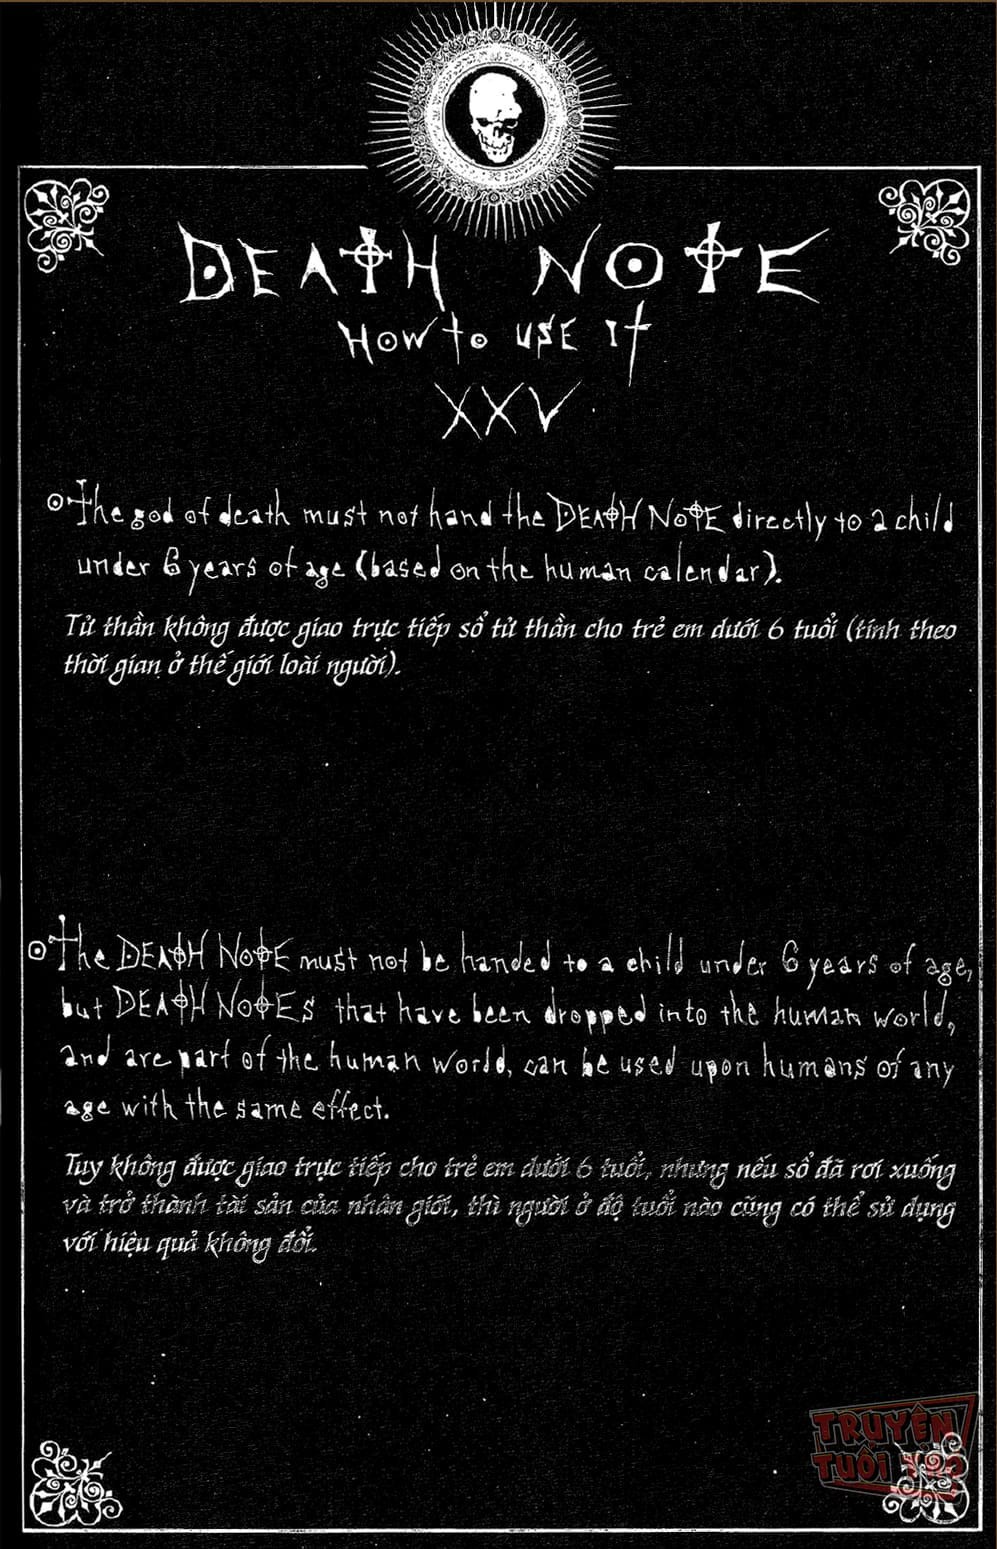 DEATH NOTE
HOW to USE It
XXV
The god of death must not hand the DEATH NOTE directly to a child
under 6 years of age (based on the human calendar).
Tử thần không được giao trực tiếp sổ tử thần cho trẻ em dưới 6 tuổi (tính theo
thời gian ở thế giới loài người).
The DEATH NOTE must not be handed to a child under 6 years of age,
but DEATH NOTES that have been dropped into the human world,
and are part of the human world, can be used upon humans of any
age with the same effect.
Tuy không được giao trực tiếp cho trẻ em dưới 6 tuổi, nhưng nếu sổ đã rơi xuống
và trở thành tài sản của nhân giới, thì người ở độ tuổi nào cũng có thể sử dụng
với hiệu quả không đổi.
TRUYỆN
TUỔI